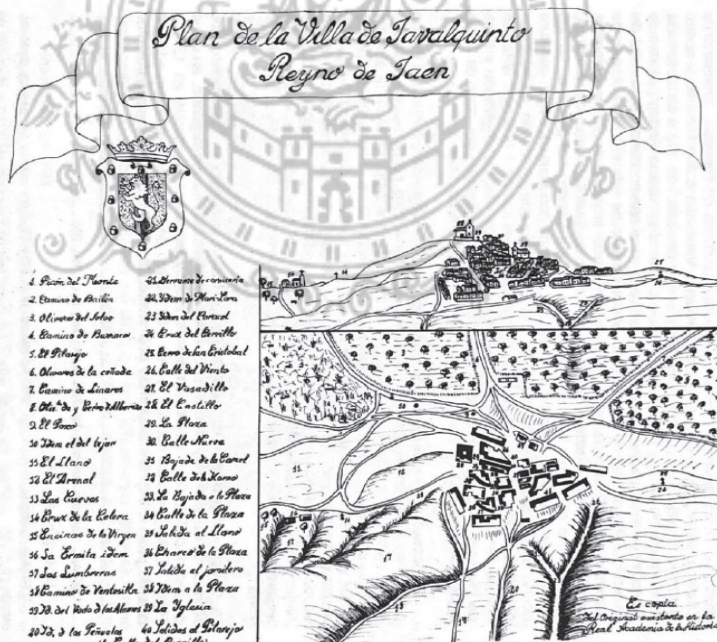 Plan de la Villa de Javalquinto
Reyno de Jaen
1. Picón del Monte
2. Camino de Bailén
3. Olivares del Selvo
4. Camino de Barraco
5. El Pilarejo
6. Olivares de la cañada
7. Camino de Linares
9. El Pozo
10 Idem el del tejar
11 El Llano
12 El Arenal
13 Las Cuevas
14 Cruz de la Colera
15 Encinas de la Virgen
16 La Ermita idem
17 Las Lumbreras
18 Camino de Ventosilla
19 Id. del Vado d las Alamos
20 Id. d las Peñuelas
21 Derrame de carniceria
22 Idem de Mari-Lara
23 Idem del
24 Cruz del Cerrillo
25 Cerro de San Cristobal
26 Calle del Viento
27. El Vasadillo
28 El Castillo
29. La Plaza
30. Calle Nueva
31 Bajada de la Carcel
32 Calle del Horno
33. La Bajada a la Plaza
34 Calle de la Plaza
35 Salida al Llano
36 Charco de la Plaza
37 Salida al
38 Idem a la Plaza
39 La Iglesia
40 Salidas al Pilarejo
Es copia
del Original existente en la
Real Academia de la Historia